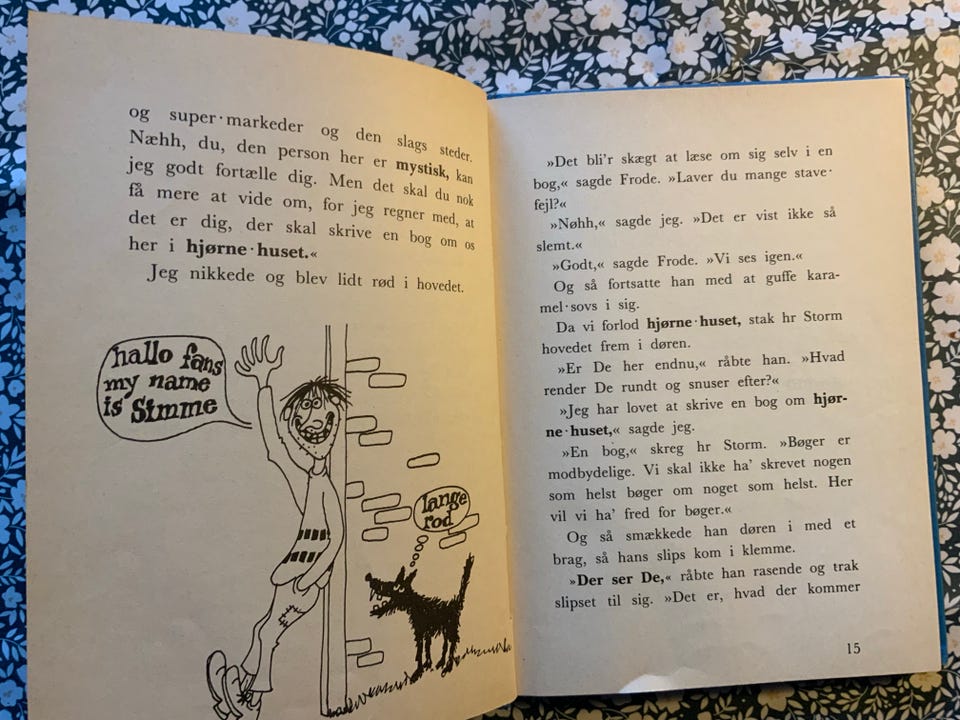 og super·markeder og den slags steder.
Næhh, du, den person her er mystisk, kan
jeg godt fortælle dig. Men det skal du nok
få mere at vide om, for jeg regner med, at
det er dig, der skal skrive en bog om os
her i hjørne·huset.«
Jeg nikkede og blev lidt rød i hovedet.
hallo fans
my name
is Simme
lange
rod
»Det bli'r skægt at læse om sig selv i en
bog,« sagde Frode. »Laver du mange stave·
fejl?«
»Nøhh,« sagde jeg. »Det er vist ikke så
slemt.«
»Godt,« sagde Frode. »Vi ses igen.«
Og så fortsatte han med at guffe kara-
mel·sovs i sig.
Da vi forlod hjørne·huset, stak hr Storm
hovedet frem i døren.
»Er De her endnu,« råbte han. »Hvad
render De rundt og snuser efter?«
»Jeg har lovet at skrive en bog om hjør-
ne·huset,« sagde jeg.
»En bog,« skreg hr Storm. »Bøger er
modbydelige. Vi skal ikke ha' skrevet nogen
som helst bøger om noget som helst. Her
vil vi ha' fred for bøger.«
Og så smækkede han døren i med et
brag, så hans slips kom i klemme.
»Der ser De,« råbte han rasende og trak
slipset til sig. »Det er, hvad der kommer
15